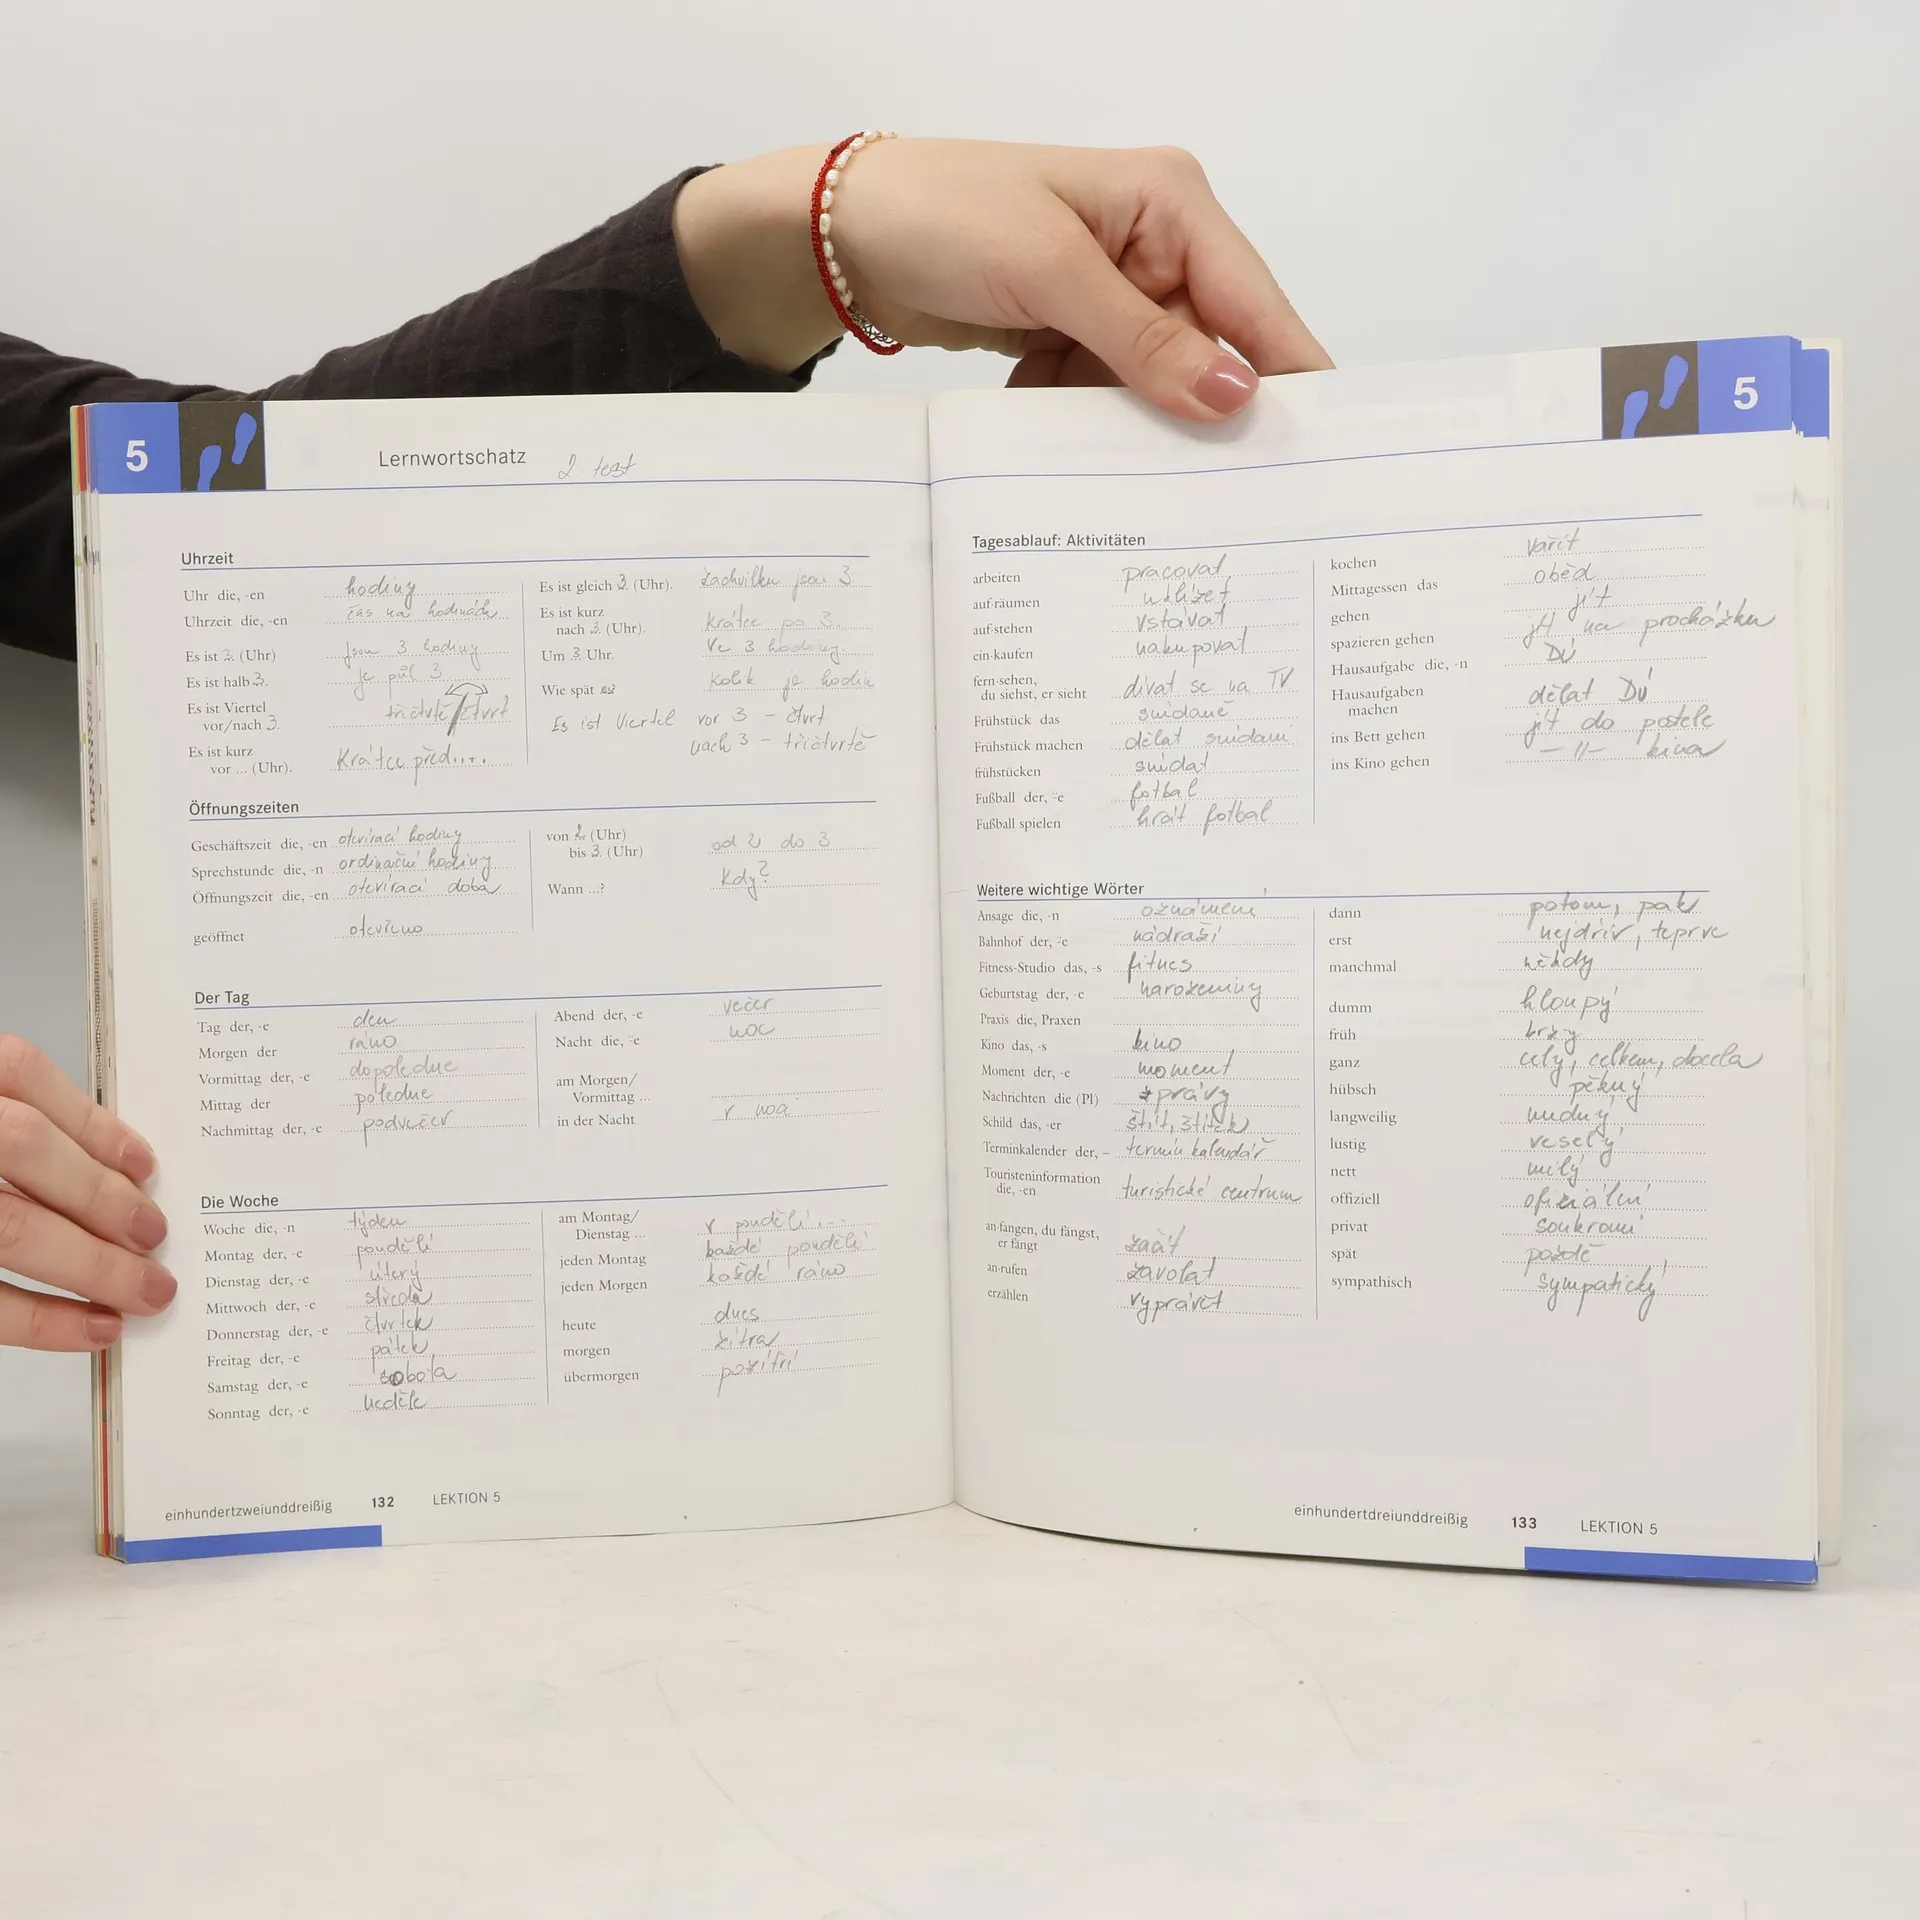 5
Lernwortschatz 2. test
Uhrzeit
Uhr die, -en hodiny
Uhrzeit die, -en čas na hodinách
Es ist 3. (Uhr) jsou 3 hodiny
Es ist halb 3. je půl 3
Es ist Viertel
vor/nach 3. tričtvrtě/čtvrt
Es ist kurz
vor ... (Uhr). Krátce před....
Es ist gleich 3. (Uhr). zachvilku jsou 3
Es ist kurz
nach 3. (Uhr). krátce po 3.
Um 3 Uhr. Ve 3 hodiny.
Wie spät kolik je hodin
Es ist Viertel vor 3 – čtvrt
nach 3 – tričtvrtě
Öffnungszeiten
Geschäftszeit die, -en otvírací hodiny
Sprechstunde die, -n ordinační hodiny
Öffnungszeit die, -en otevírací doba
geöffnet otevřeno
von 2 (Uhr)
bis 3. (Uhr) od 2 do 3
Wann ...? Kdy?
Der Tag
Tag der, -e den
Morgen der ráno
Vormittag der, -e dopoledne
Mittag der poledne
Nachmittag der, -e podvečer
Abend der, -e večer
Nacht die, ¨-e noc
am Morgen/
Vormittag ...
in der Nacht v noci
Die Woche
Woche die, -n týden
Montag der, -e pondělí
Dienstag der, -e úterý
Mittwoch der, -e středa
Donnerstag der, -e čtvrtek
Freitag der, -e pátek
Samstag der, -e sobota
Sonntag der, -e neděle
am Montag/
Dienstag ... v pondělí...
jeden Montag každé pondělí
jeden Morgen každé ráno
heute dnes
morgen zítra
übermorgen pozítří
einhundertzweiunddreißig 132 LEKTION 5
5
Tagesablauf: Aktivitäten
arbeiten pracovat
auf·räumen uklízet
auf·stehen vstávat
ein·kaufen nakupovat
fern·sehen,
du siehst, er sieht dívat se na TV
Frühstück das snídaně
Frühstück machen dělat snídani
frühstücken snídat
Fußball der, ¨-e fotbal
Fußball spielen hrát fotbal
kochen vařit
Mittagessen das oběd
gehen jít
spazieren gehen jít na procházku
Hausaufgabe die, -n DÚ
Hausaufgaben
machen dělat DÚ
ins Bett gehen jít do postele
ins Kino gehen –//– kina
Weitere wichtige Wörter
Ansage die, -n oznámení
Bahnhof der, ¨-e nádraží
Fitness-Studio das, -s fitnes
Geburtstag der, -e narozeniny
Praxis die, Praxen
Kino das, -s kino
Moment der, -e moment
Nachrichten die (Pl) zprávy
Schild das, -er štít, štítek
Terminkalender der, – termín kalendář
Touristeninformation
die, -en turistické centrum
an·fangen, du fängst,
er fängt začít
an·rufen zavolat
erzählen vyprávět
dann potom, pak
erst nejdřív, teprve
manchmal někdy
dumm hloupý
früh brzy
ganz celý, celkem, docela
hübsch pěkný
langweilig nudný
lustig veselý
nett milý
offiziell oficiální
privat soukromí
spät pozdě
sympathisch sympatický
einhundertdreiunddreißig 133 LEKTION 5